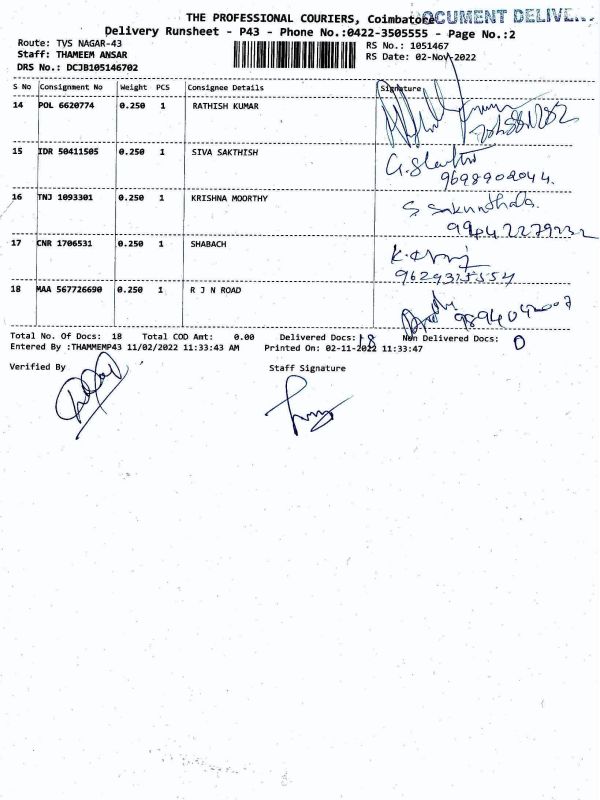 THE PROFESSIONAL COURIERS, Coimbatore
DOCUMENT DELIVE
Delivery Runsheet - P43 - Phone No.:0422-3505555 - Page No.:2
Route: TVS NAGAR-43
RS No.: 1051467
Staff: THAMEEM ANSAR
RS Date: 02-Nov-2022
DRS No.: DCJB105146702
S No Consignment No Weight PCS Consignee Details Signature
14 POL 6620774 0.250 1 RATHISH KUMAR
15 IDR 50411505 0.250 1 SIVA SAKTHISH
9698909044.
16 TNJ 1093301 0.250 1 KRISHNA MOORTHY
S. Sakunthala.
99442279232
17 CNR 1706531 0.250 1 SHABACH
9629315554
18 MAA 567726690 0.250 1 R J N ROAD
9894042007
Total No. Of Docs: 18 Total COD Amt: 0.00 Delivered Docs: 18 Non Delivered Docs: 0
Entered By :THAMMEMP43 11/02/2022 11:33:43 AM Printed On: 02-11-2022 11:33:47
Verified By Staff Signature